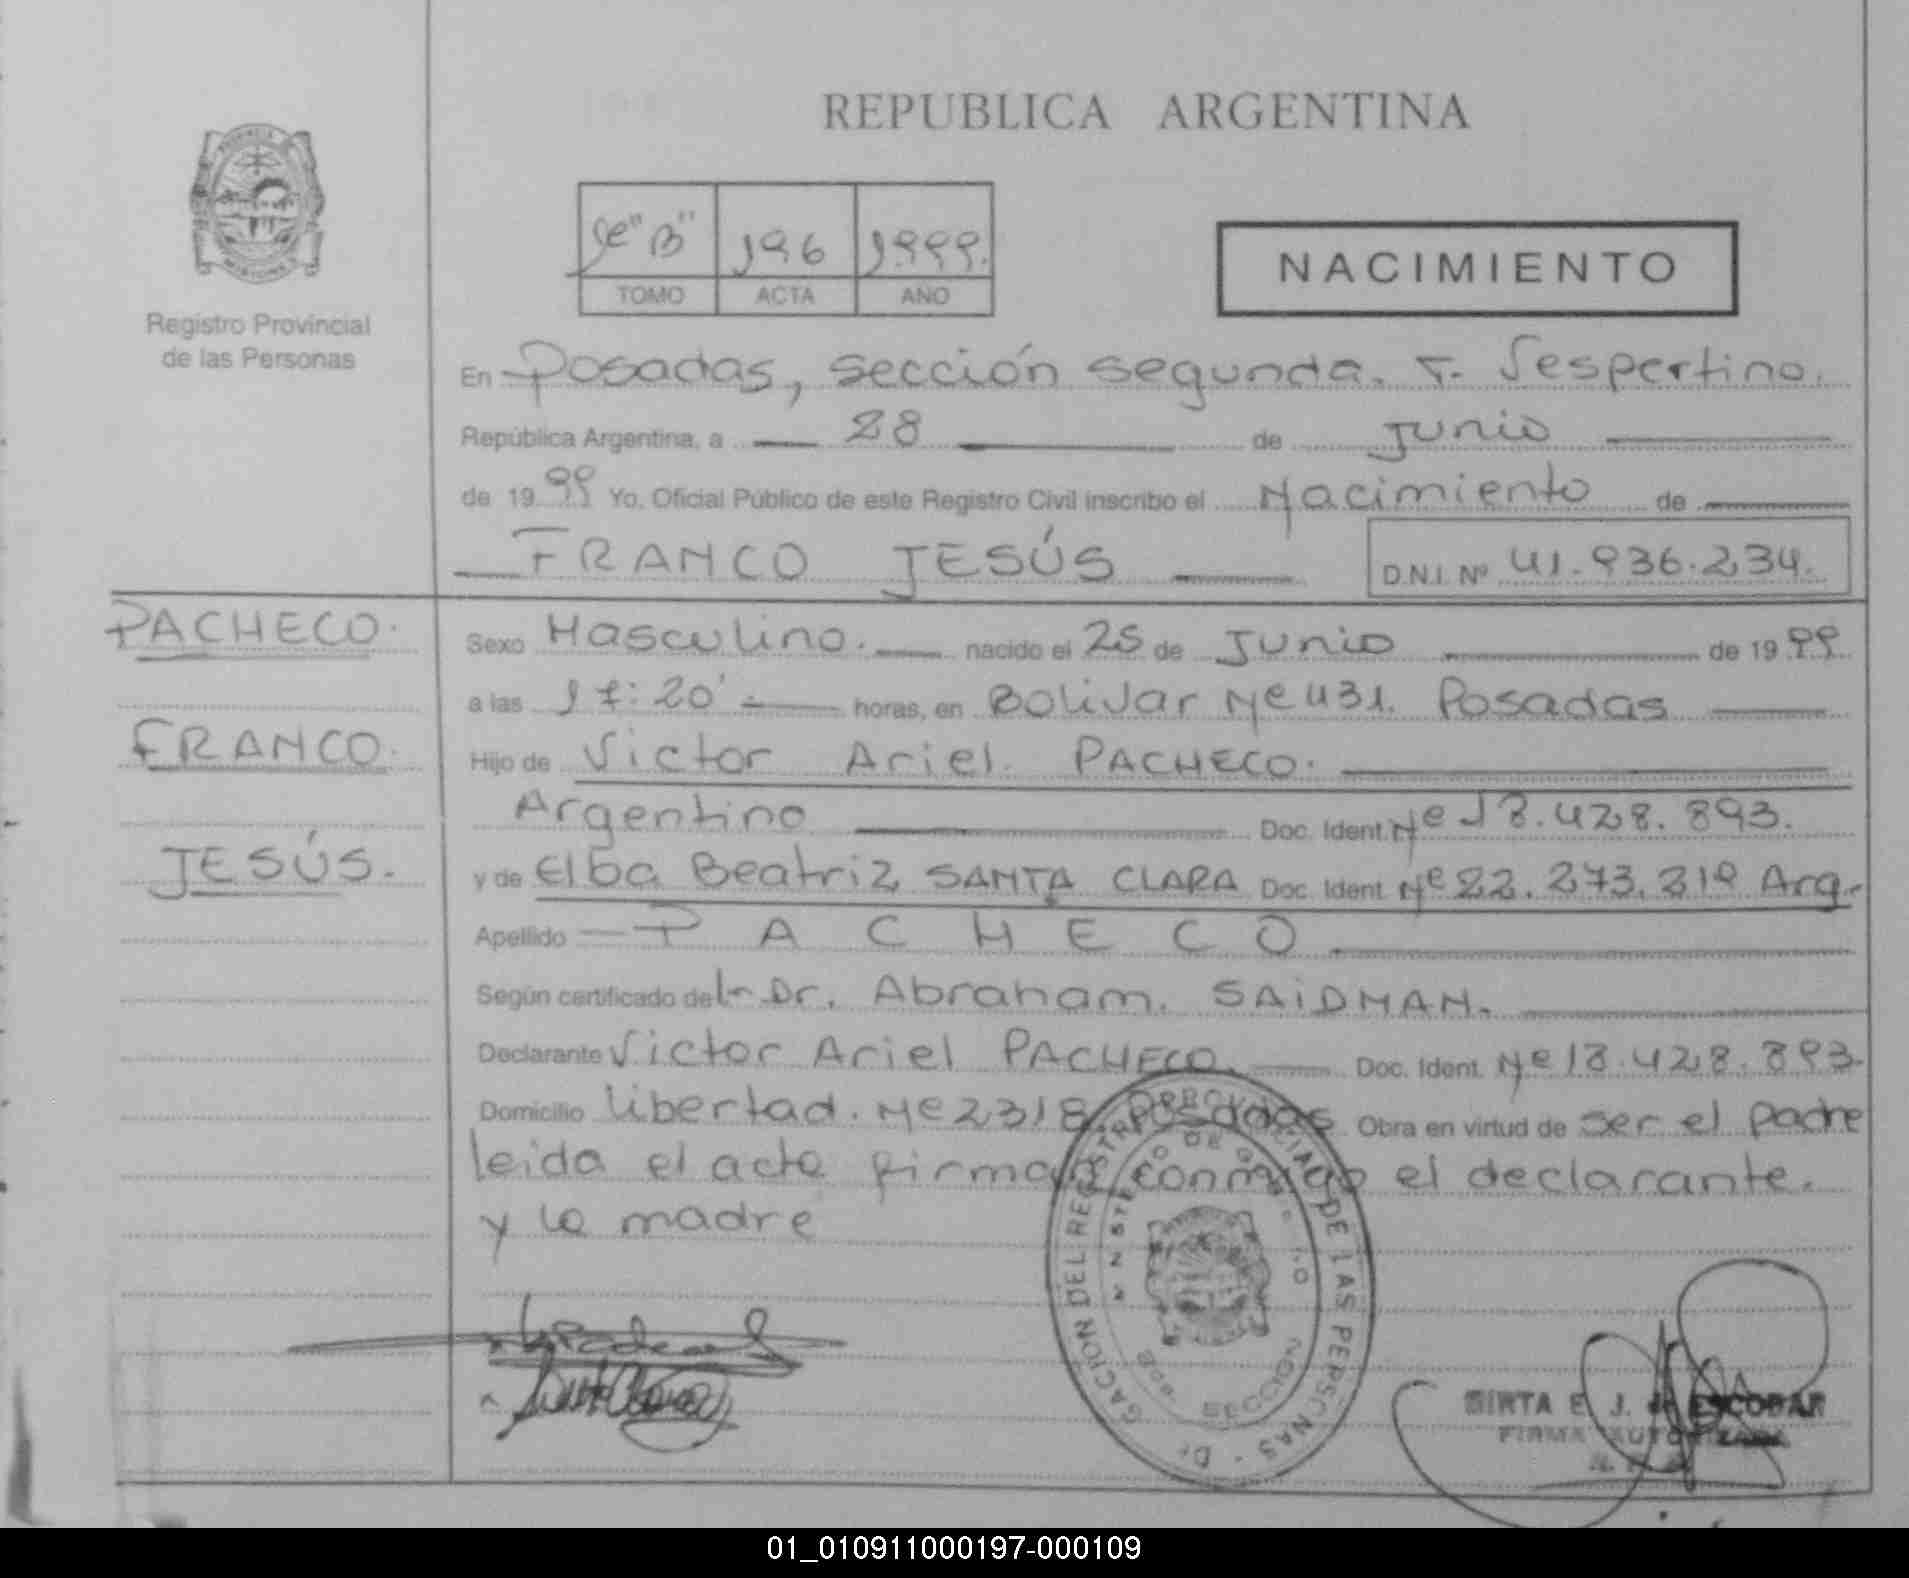 REPUBLICA ARGENTINA
1º "B" 196 1999.
TOMO ACTA AÑO
NACIMIENTO
Registro Provincial
de las Personas
En Posadas, sección segunda. T. Vespertino.
República Argentina, a 28 de Junio
de 1999 Yo, Oficial Público de este Registro Civil inscribo el Nacimiento de
FRANCO JESÚS D.N.I. Nº 41.936.234.
PACHECO.
FRANCO.
JESÚS.
Sexo Masculino. nacido el 25 de Junio de 1999
a las 17:20' horas, en Bolivar Nº 431. Posadas
Hijo de Victor Ariel PACHECO.
Argentino Doc. Ident. Nº 18.428.893.
y de Elba Beatriz SANTA CLARA Doc. Ident. Nº 22.273.210 Arg.
Apellido PACHECO
Según certificado del Dr. Abraham. SAIDMAN.
Declarante Victor Ariel PACHECO. Doc. Ident. Nº 18.428.893.
Domicilio Libertad. Nº 2318 Posadas Obra en virtud de ser el padre
leida el acta firman conmigo el declarante.
y la madre
DEL REGISTRO PROVINCIAL DE LAS PERSONAS
SECCION
SIRTA E. J. de ESCOBAR
FIRMA AUTORIZADA
01_010911000197-000109